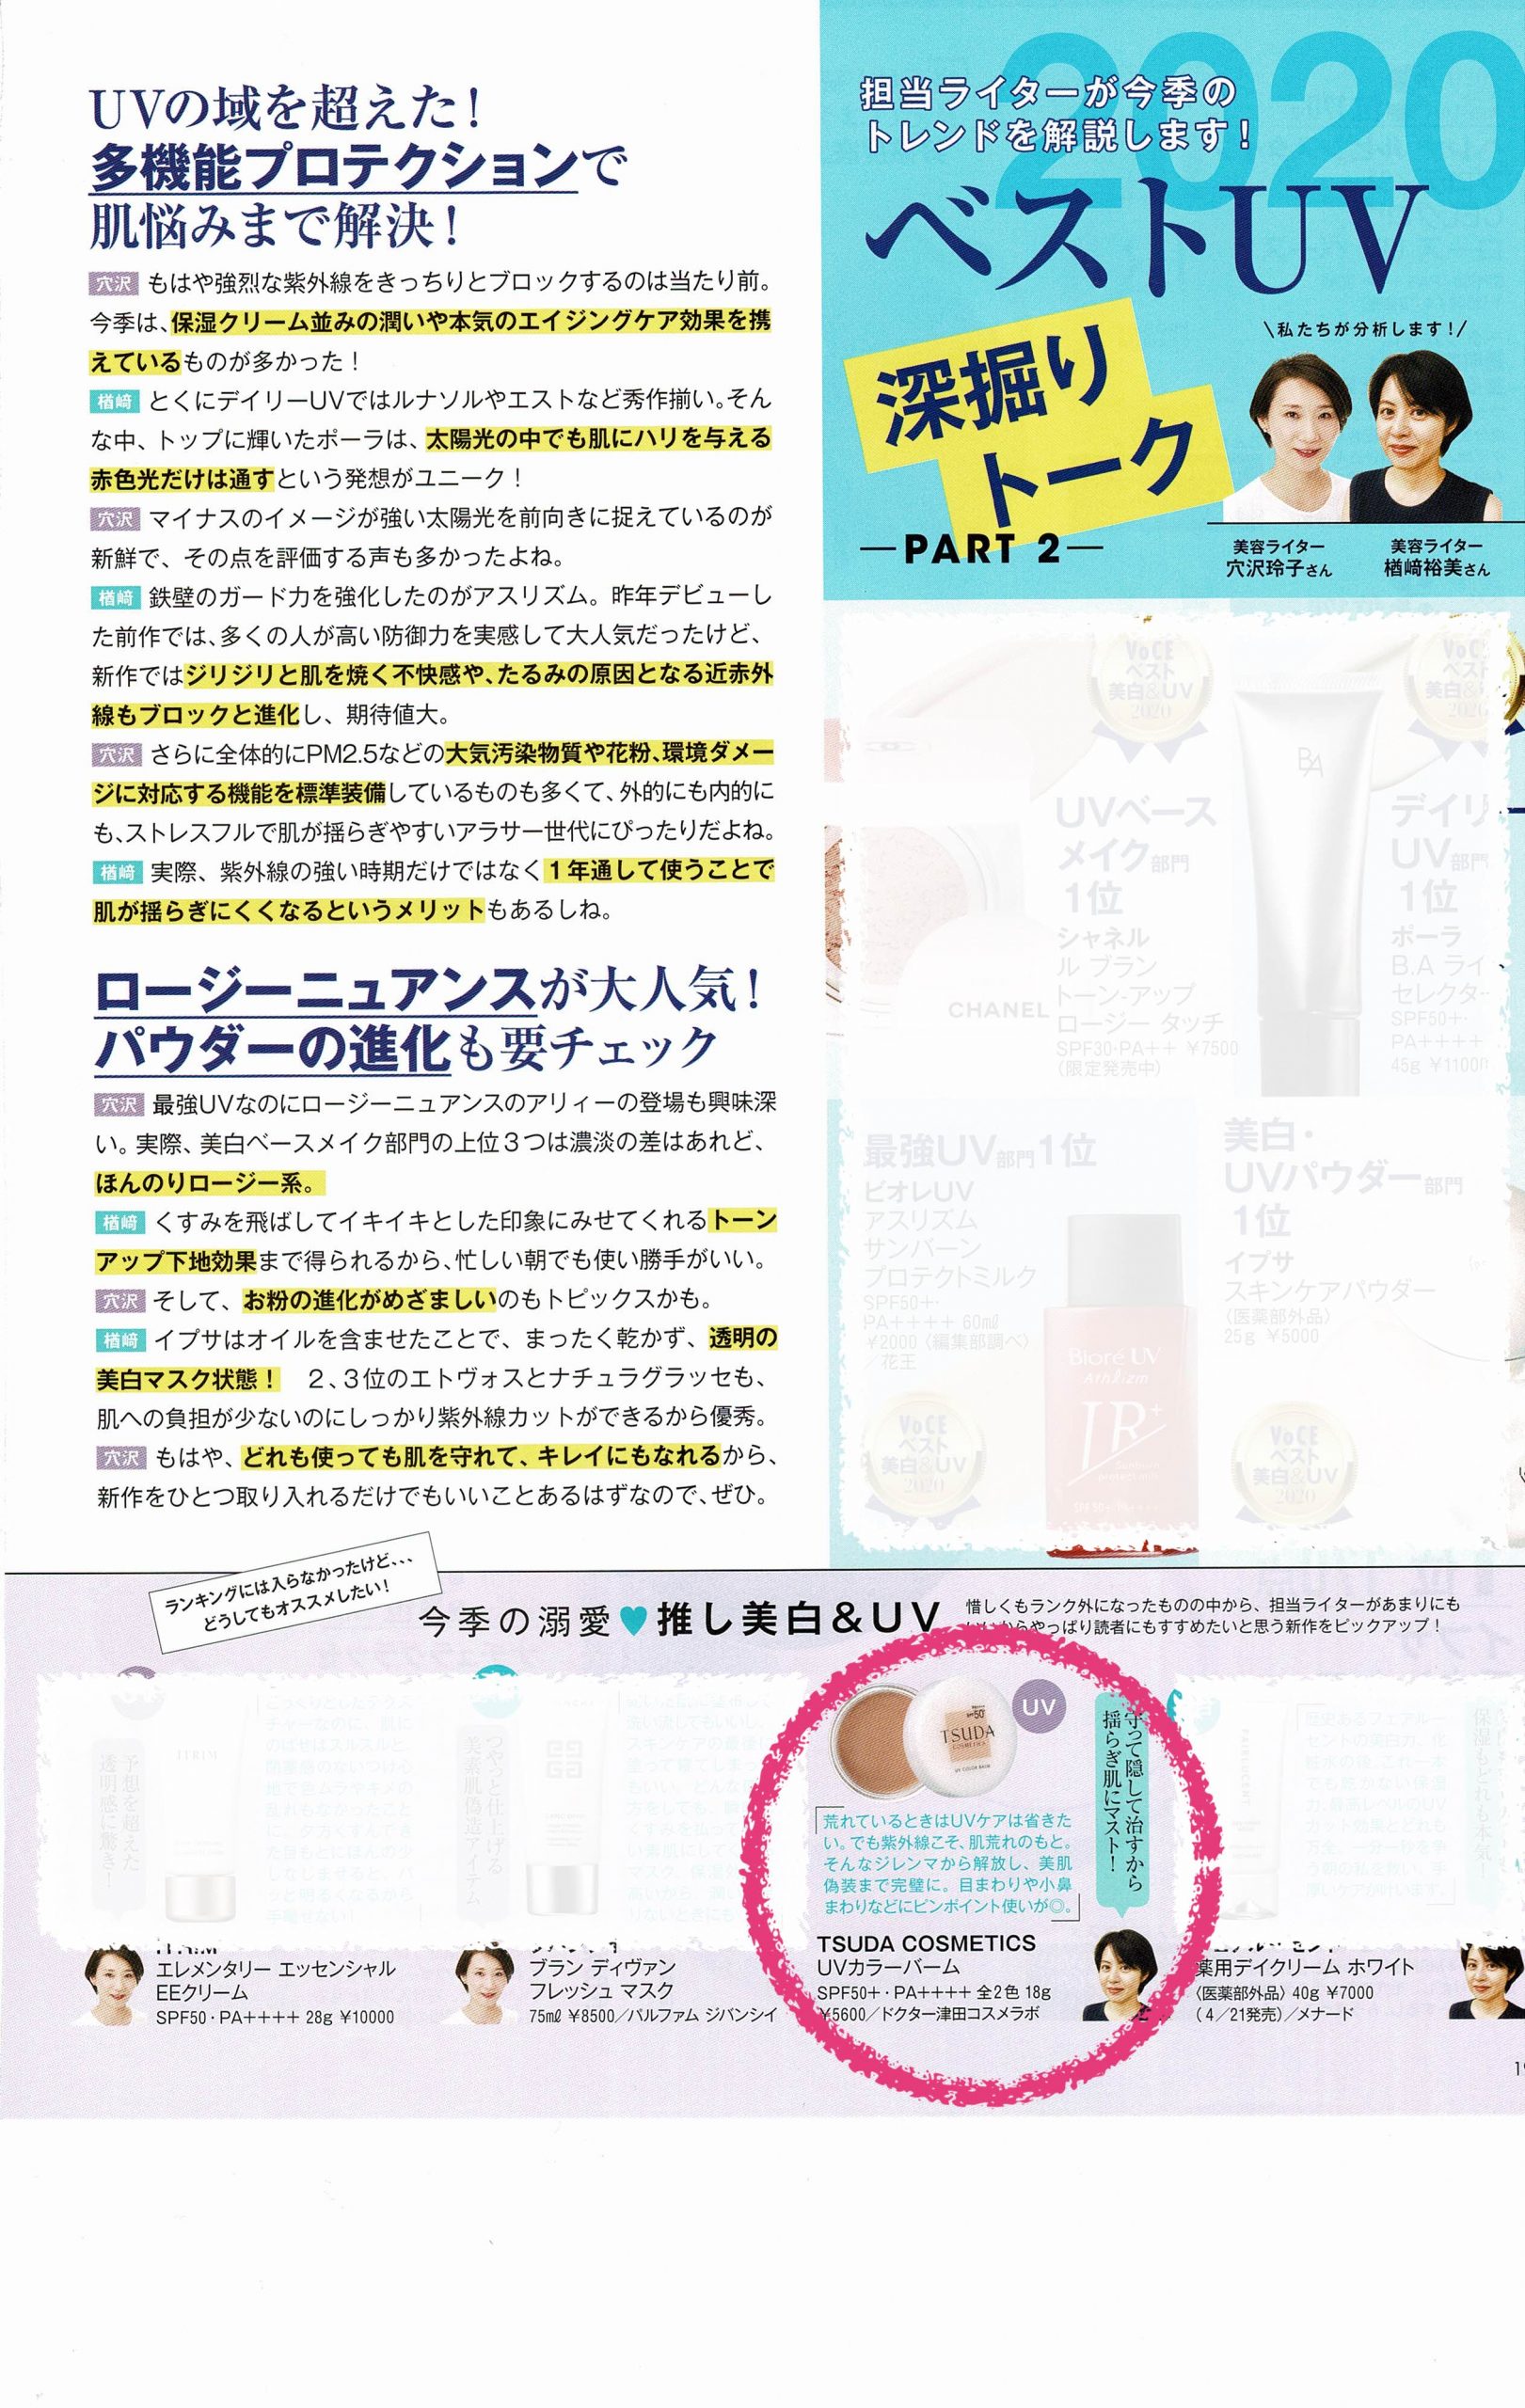 UVの域を超えた！
多機能プロテクションで
肌悩みまで解決！
穴沢 もはや強烈な紫外線をきっちりとブロックするのは当たり前。
今季は、保湿クリーム並みの潤いや本気のエイジングケア効果を携
えているものが多かった！
楢﨑 とくにデイリーUVではルナソルやエストなど秀作揃い。そん
な中、トップに輝いたポーラは、太陽光の中でも肌にハリを与える
赤色光だけは通すという発想がユニーク！
穴沢 マイナスのイメージが強い太陽光を前向きに捉えているのが
新鮮で、その点を評価する声も多かったよね。
楢﨑 鉄壁のガード力を強化したのがアスリズム。昨年デビューし
た前作では、多くの人が高い防御力を実感して大人気だったけど、
新作ではジリジリと肌を焼く不快感や、たるみの原因となる近赤外
線もブロックと進化し、期待値大。
穴沢 さらに全体的にPM2.5などの大気汚染物質や花粉、環境ダメー
ジに対応する機能を標準装備しているものも多くて、外的にも内的に
も、ストレスフルで肌が揺らぎやすいアラサー世代にぴったりだよね。
楢﨑 実際、紫外線の強い時期だけではなく1年通して使うことで
肌が揺らぎにくくなるというメリットもあるしね。
ロージーニュアンスが大人気！
パウダーの進化も要チェック
穴沢 最強UVなのにロージーニュアンスのアリィーの登場も興味深
い。実際、美白ベースメイク部門の上位3つは濃淡の差はあれど、
ほんのりロージー系。
楢﨑 くすみを飛ばしてイキイキとした印象にみせてくれるトーン
アップ下地効果まで得られるから、忙しい朝でも使い勝手がいい。
穴沢 そして、お粉の進化がめざましいのもトピックスかも。
楢﨑 イプサはオイルを含ませたことで、まったく乾かず、透明の
美白マスク状態！ 2、3位のエトヴォスとナチュラグラッセも、
肌への負担が少ないのにしっかり紫外線カットができるから優秀。
穴沢 もはや、どれも使っても肌を守れて、キレイにもなれるから、
新作をひとつ取り入れるだけでもいいことあるはずなので、ぜひ。
2020
担当ライターが今季の
トレンドを解説します！
ベストUV
深掘り
トーク
PART 2
\私たちが分析します！/
美容ライター
穴沢玲子さん
美容ライター
楢﨑裕美さん
VoCE
ベスト
美白&UV
2020
UVベース
メイク部門
1位
シャネル
ル ブラン
トーン-アップ
ロージー タッチ
SPF30・PA++ ¥7500
（限定発売中）
CHANEL
BA
デイリ
UV部門
1位
ポーラ
B.A ライ
セレクタ
SPF50+・
PA++++
45g
最強UV部門1位
ビオレUV
アスリズム
サンバーン
プロテクトミルク
SPF50+・
PA++++ 60㎖
¥2000（編集部調べ）
花王
Bioré UV
Athlizm
VoCE
ベスト
美白&UV
2020
美白・
UVパウダー部門
1位
イプサ
スキンケアパウダー
〈医薬部外品〉
25g ¥5000
VoCE
ベスト
美白&UV
2020
ランキングには入らなかったけど…
どうしてもオススメしたい！
今季の溺愛♥推し美白&UV
惜しくもランク外になったものの中から、担当ライターがあまりにも
からやっぱり読者にもすすめたいと思う新作をピックアップ！
予想を超えた
透明感に驚き！
エレメンタリー エッセンシャル
EEクリーム
SPF50・PA++++ 28g ¥10000
ブラン ディヴァン
フレッシュ マスク
75㎖ ¥8500／パルファム ジバンシイ
UV
SPF 50+
TSUDA
COSMETICS
UV COLOR BALM
守って隠して治すから
揺らぎ肌にマスト！
荒れているときはUVケアは省きた
い。でも紫外線こそ、肌荒れのもと。
そんなジレンマから解放し、美肌
偽装まで完璧に。目まわりや小鼻
まわりなどにピンポイント使いが◎。
TSUDA COSMETICS
UVカラーバーム
SPF50+・PA++++ 全2色 18g
¥5600／ドクター津田コスメラボ
薬用デイクリーム ホワイト
〈医薬部外品〉 40g ¥7000
（4／21発売）／メナード